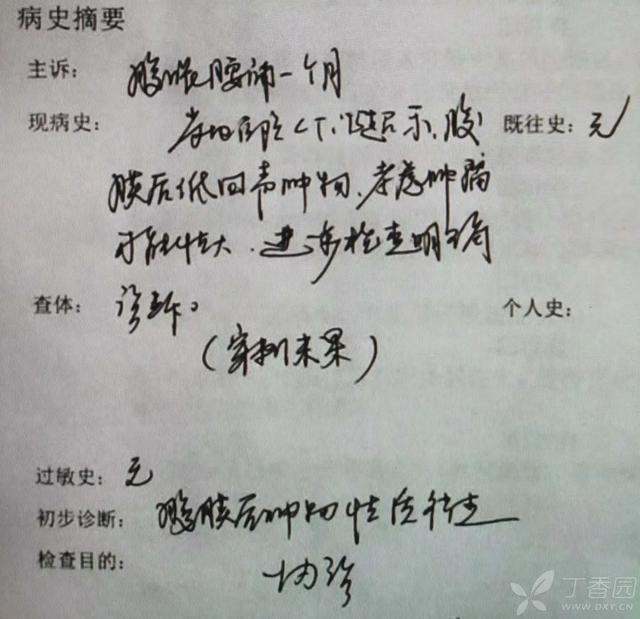 病史摘要
主诉： 腹胀腰痛一个月
现病史： 当地医院CT、超示，腹 既往史：无
膜后低回声肿物，考虑肿瘤
可能性大，进一步检查明确
查体： 诊断。 个人史：
（穿刺未果）
过敏史：无
初步诊断： 腹膜后肿物性质待查
检查目的： 协诊
丁香园
WWW.DXY.CN